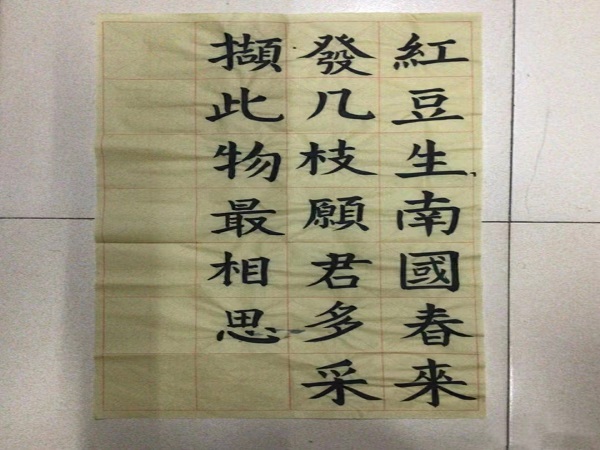 紅豆生南國春來
發几枝願君多采
擷此物最相思